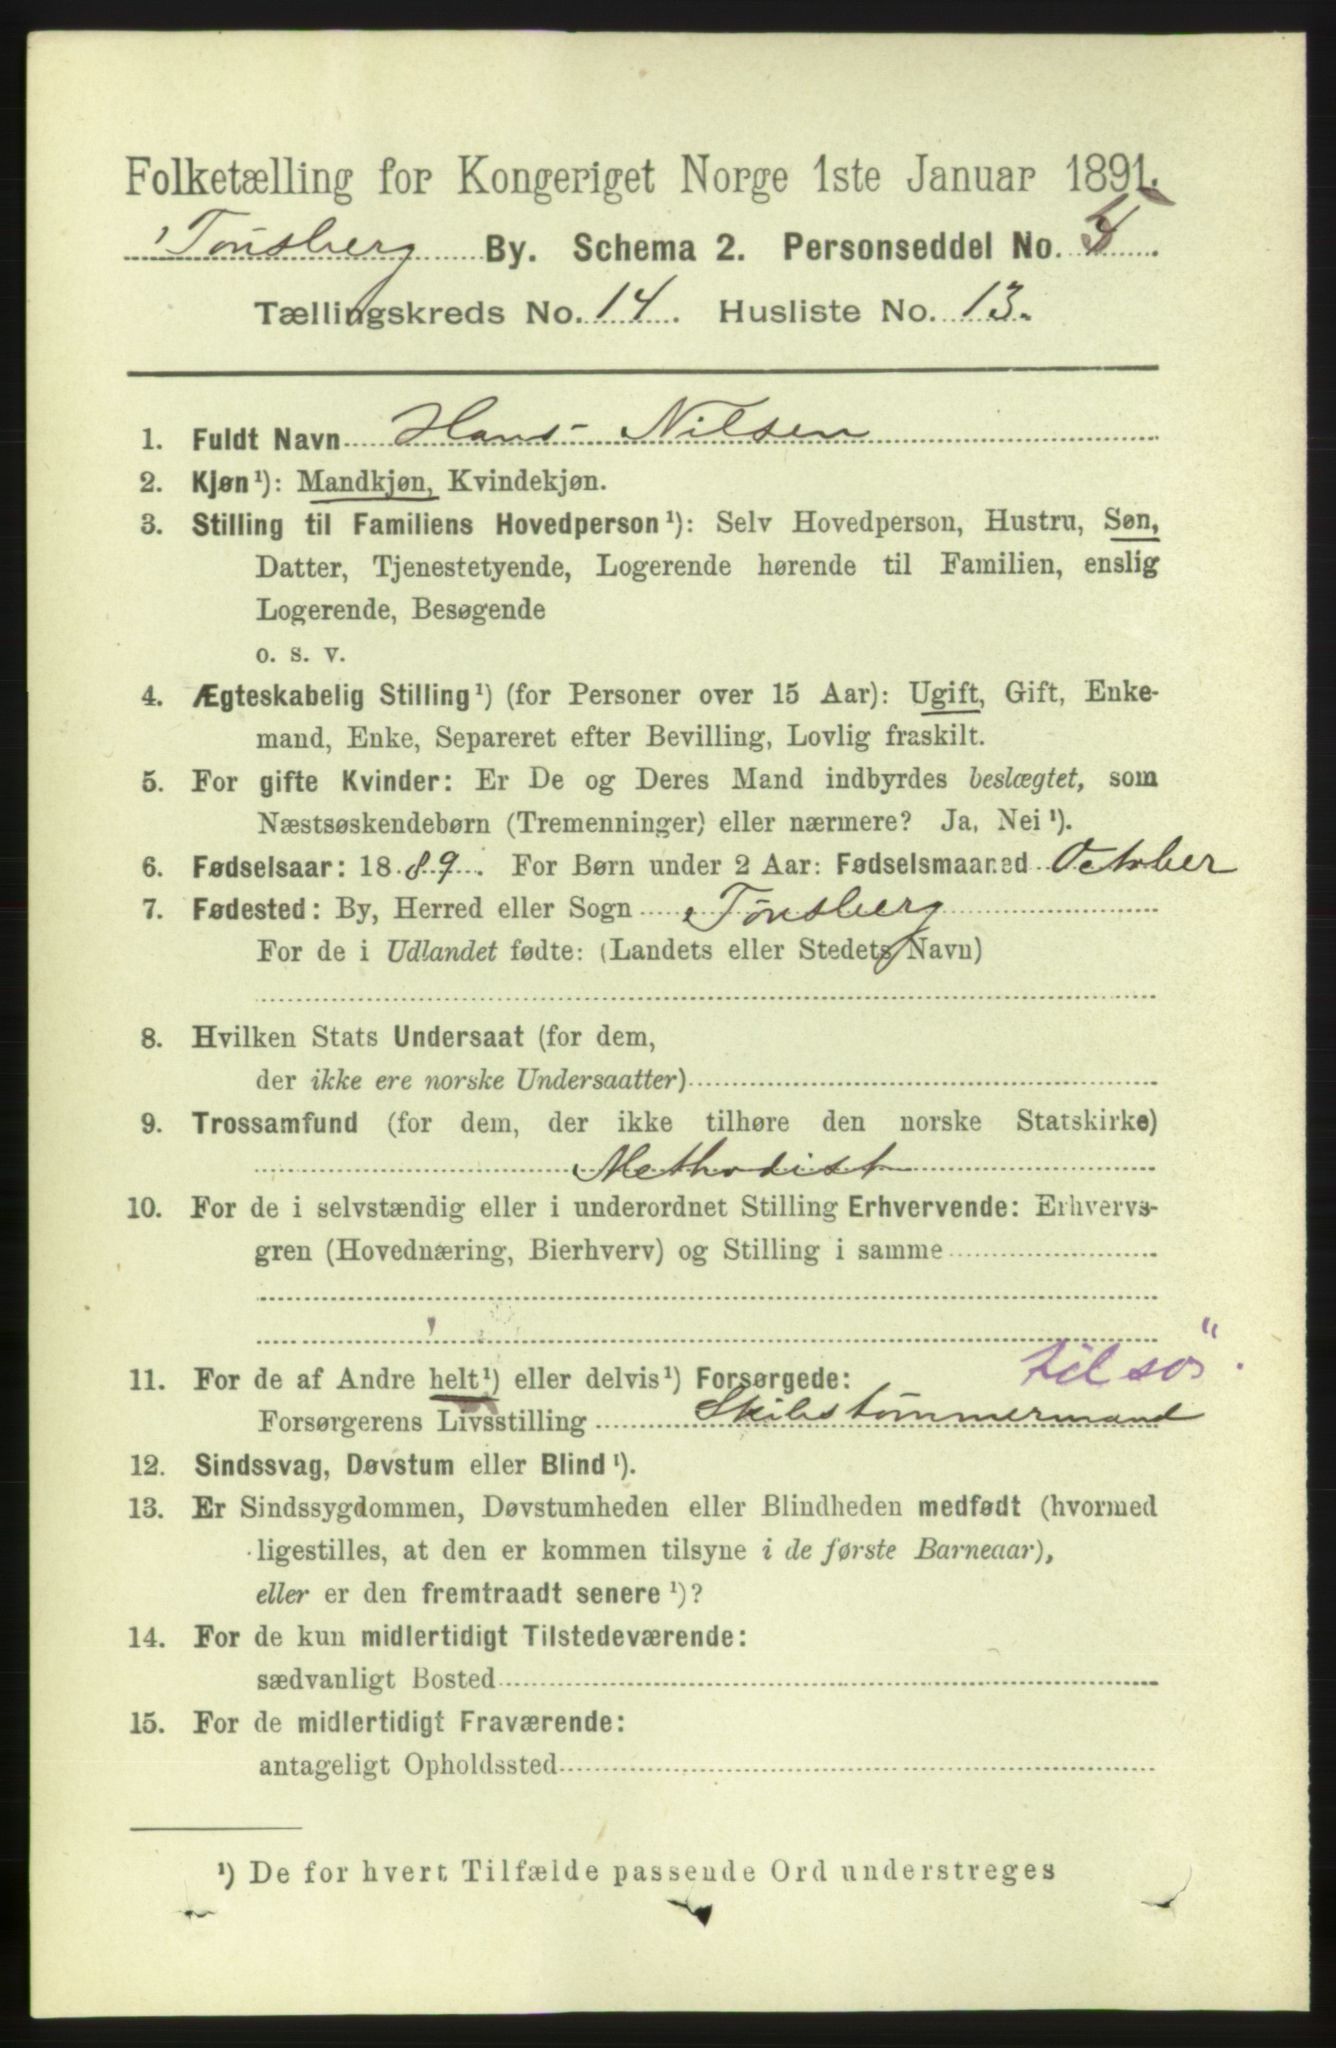 Folketælling for Kongeriget Norge 1ste Januar 1891.
Tønsberg By. Schema 2. Personseddel No.
Tællingskreds No. 14. Husliste No. 13.
1. Fuldt Navn Hans Nilsen
2. Kjøn¹): Mandkjøn, Kvindekjøn.
3. Stilling til Familiens Hovedperson¹): Selv Hovedperson, Hustru, Søn,
Datter, Tjenestetyende, Logerende hørende til Familien, enslig
Logerende, Besøgende
o. s. v.
4. Ægteskabelig Stilling¹) (for Personer over 15 Aar): Ugift, Gift, Enke-
mand, Enke, Separeret efter Bevilling, Lovlig fraskilt.
5. For gifte Kvinder: Er De og Deres Mand indbyrdes beslægtet, som
Næstsøskendebørn (Tremenninger) eller nærmere? Ja, Nei¹).
6. Fødselsaar: 1889. For Børn under 2 Aar: Fødselsmaaned October
7. Fødested: By, Herred eller Sogn Tønsberg
For de i Udlandet fødte: (Landets eller Stedets Navn)
8. Hvilken Stats Undersaat (for dem,
der ikke ere norske Undersaatter)
9. Trossamfund (for dem, der ikke tilhøre den norske Statskirke)
Methodist
10. For de i selvstændig eller i underordnet Stilling Erhvervende: Erhvervs-
gren (Hovednæring, Bierhverv) og Stilling i samme
til søs.
11. For de af Andre helt¹) eller delvis¹) Forsørgede:
Forsørgerens Livsstilling Skibstømmermand
12. Sindssvag, Døvstum eller Blind¹).
13. Er Sindssygdommen, Døvstumheden eller Blindheden medfødt (hvormed
ligestilles, at den er kommen tilsyne i de første Barneaar),
eller er den fremtraadt senere¹)?
14. For de kun midlertidigt Tilstedeværende:
sædvanligt Bosted
15. For de midlertidigt Fraværende:
antageligt Opholdssted
¹) De for hvert Tilfælde passende Ord understreges